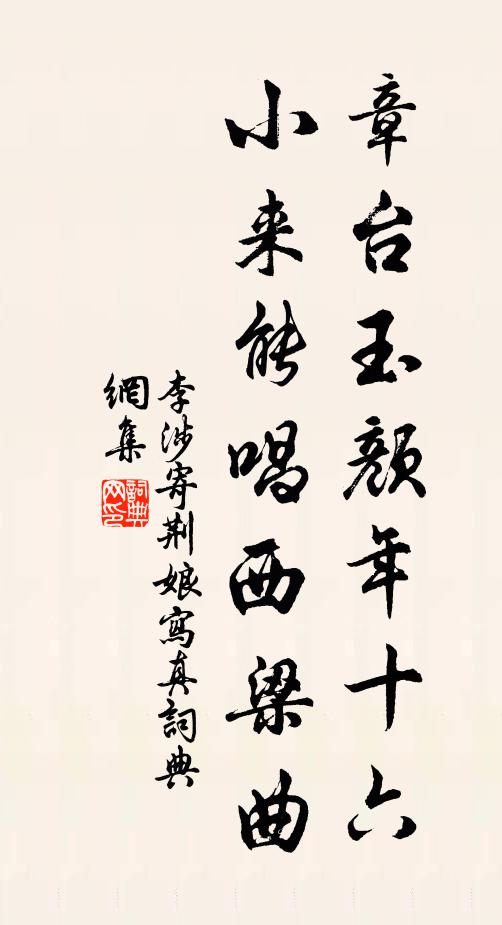 章台玉颜年十六
小来能唱西梁曲
李涉寄荆娘寫真詞典
網集
詞典
网印